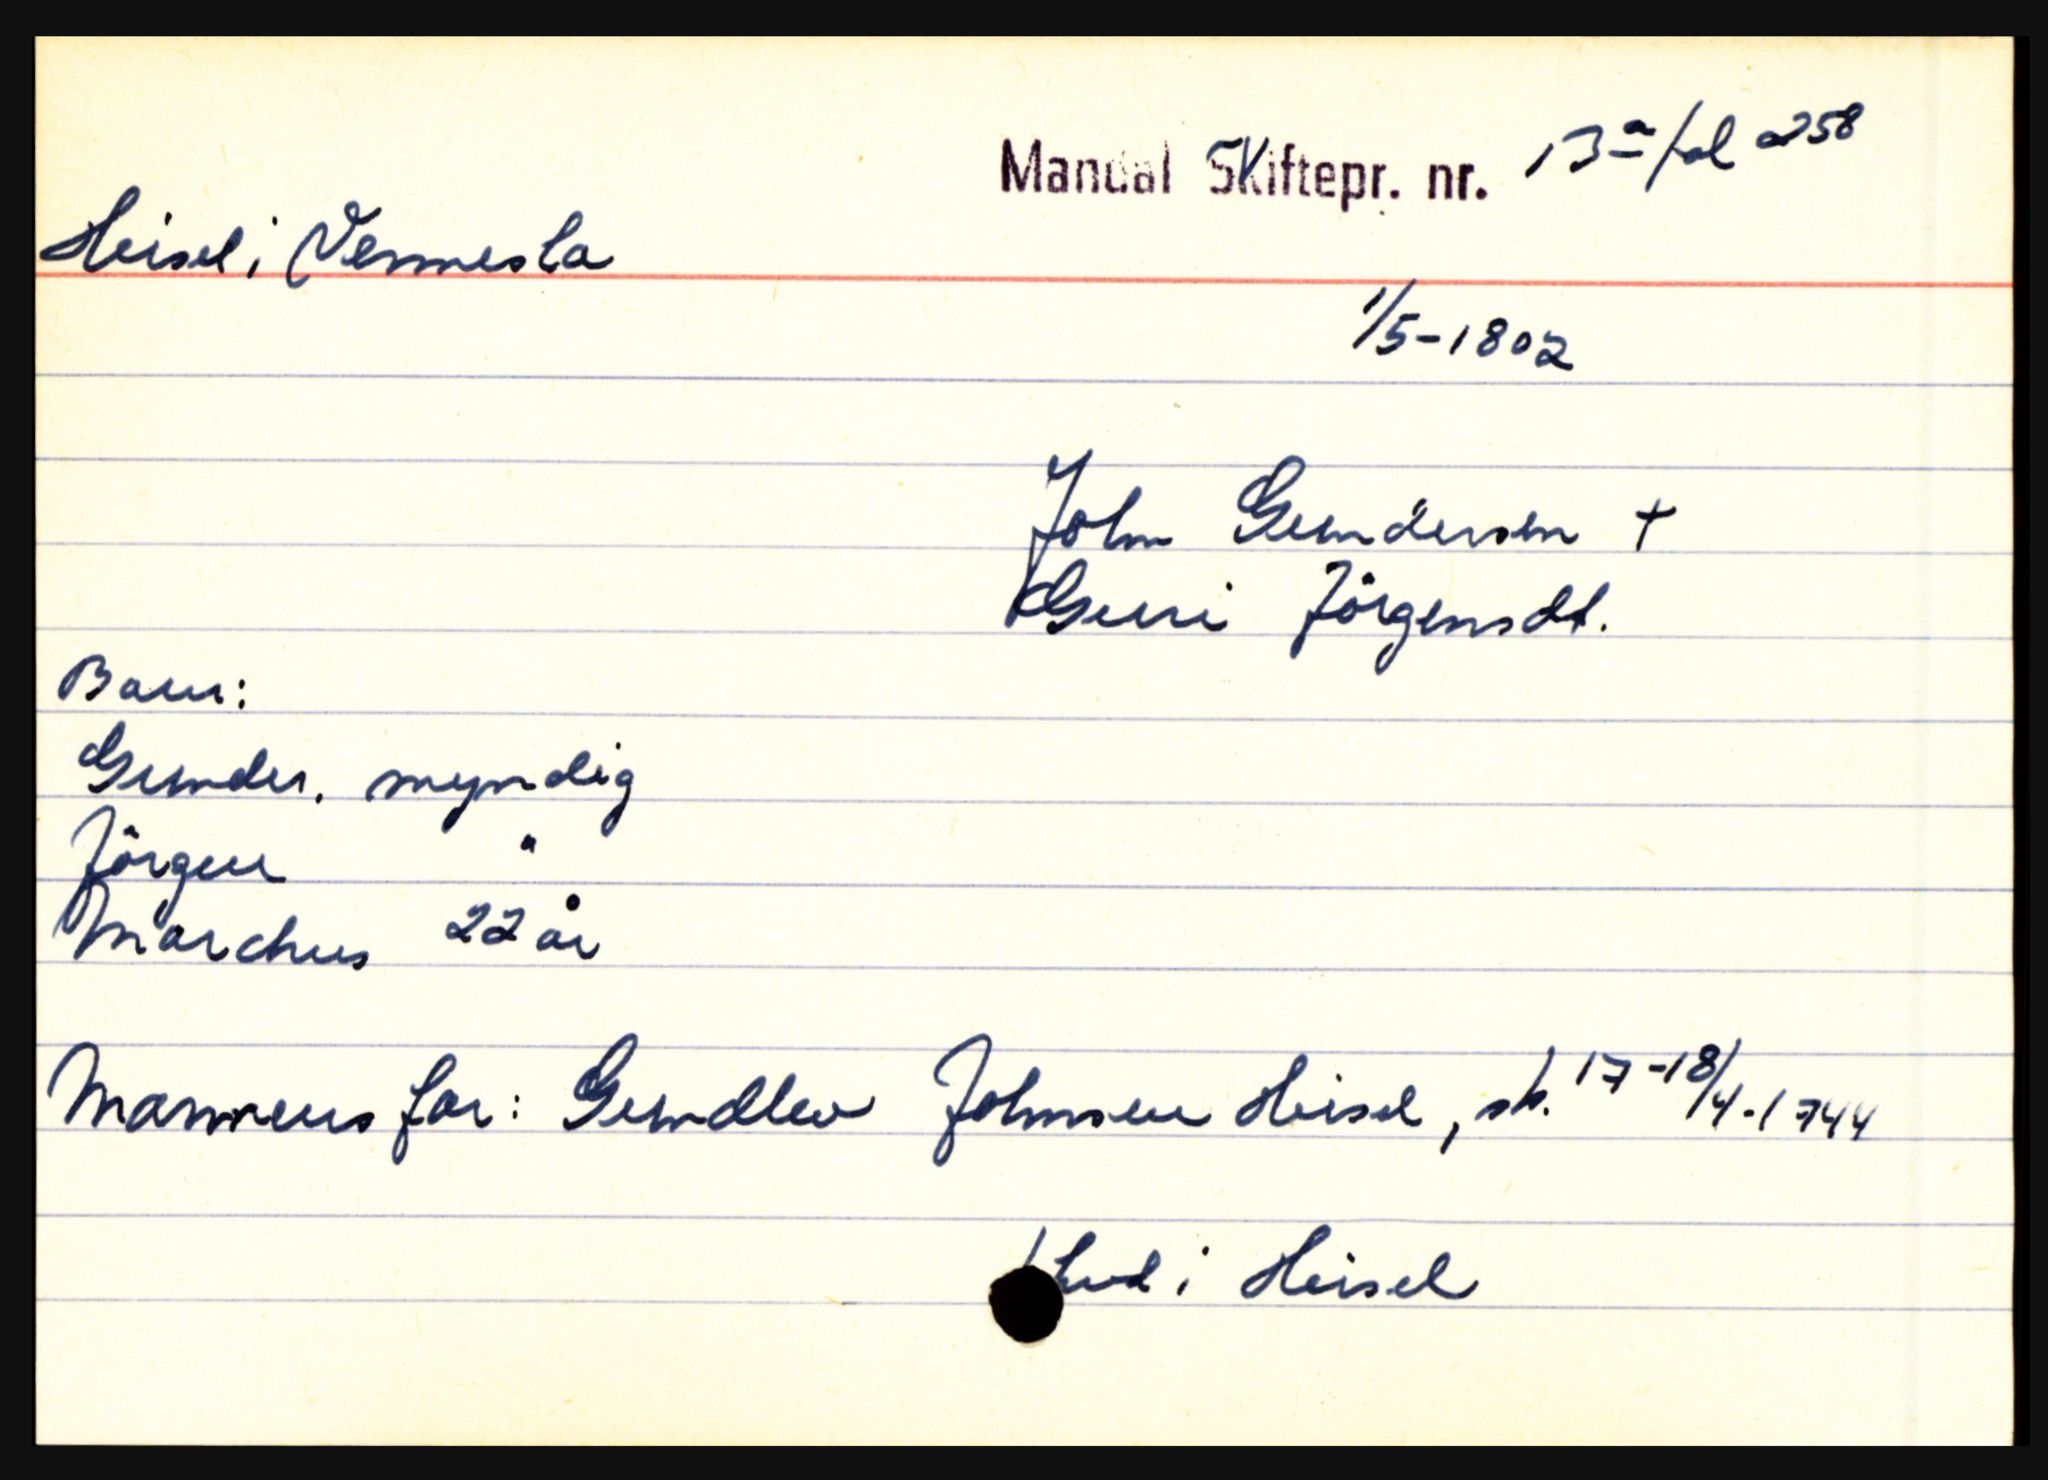 Mandal Skiftepr. nr. 13a fol 258
Heisel i Vennesla
1/5-1802
John Gundersen +
Guri Jörgensdt.
Barn:
Gunder. myndig
Jörgen "
Marchus 22 år
Mannens far: Gundlev Johnsen Heisel, sk. 17-18/4-1744
hvd i Heisel